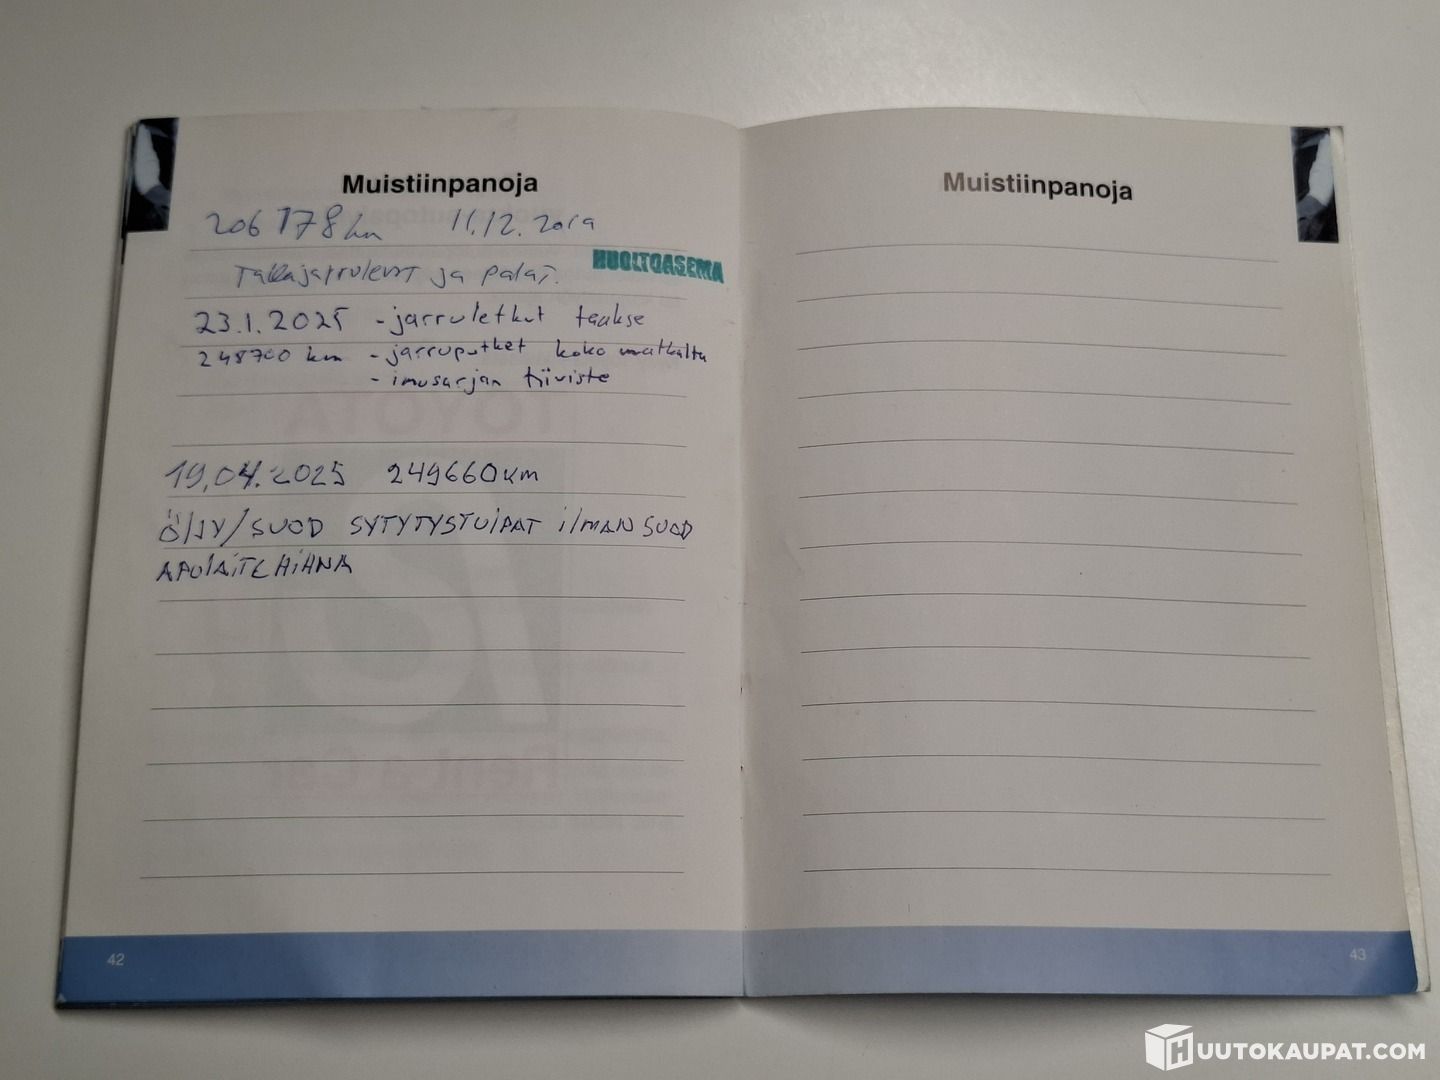 Muistiinpanoja
206 178 km 11.12.2019
Takajarrulevyt ja palat.
HUOLTOASEMA
23.1.2025 - jarruletkut taakse
248700 km - jarruputket koko matkalta
- imusarjan tiiviste
TOYOTA
19.04.2025 249660km
ÖlJY/SUOD SYTYTYSTULPAT ilMAN SUOD
APULAITEHIHNA
Rent a Car
42
Muistiinpanoja
43
HUUTOKAUPAT.COM